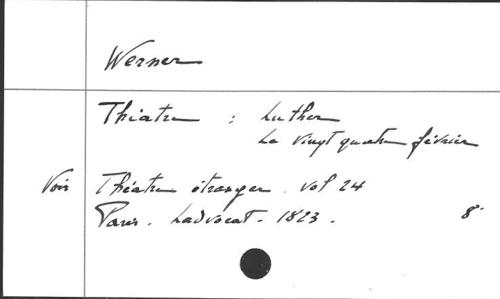 Werner
Théatre : Luther
Le vingt quatre février
Voir Théatre étranger. vol 24
Paris. Ladvocat. 1823. 8°